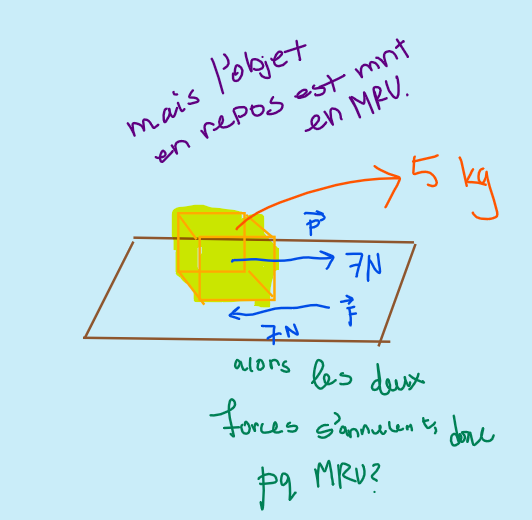 mais l'objet
en repos est mnt
en MRU.
5 kg
P
7N
F
7N
alors les deux
forces s'annulent, donc
pq MRU?